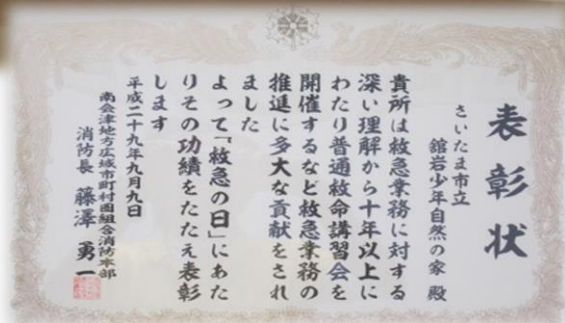 表彰状
さいたま市立
舘岩少年自然の家 殿
貴所は救急業務に対する
深い理解から十年以上に
わたり普通救命講習会を
開催するなど救急業務の
推進に多大な貢献をされ
ました
よって「救急の日」にあた
りその功績をたたえ表彰
します
平成二十九年九月九日
南会津地方広域市町村圏組合消防本部
消防長 藤澤 勇一